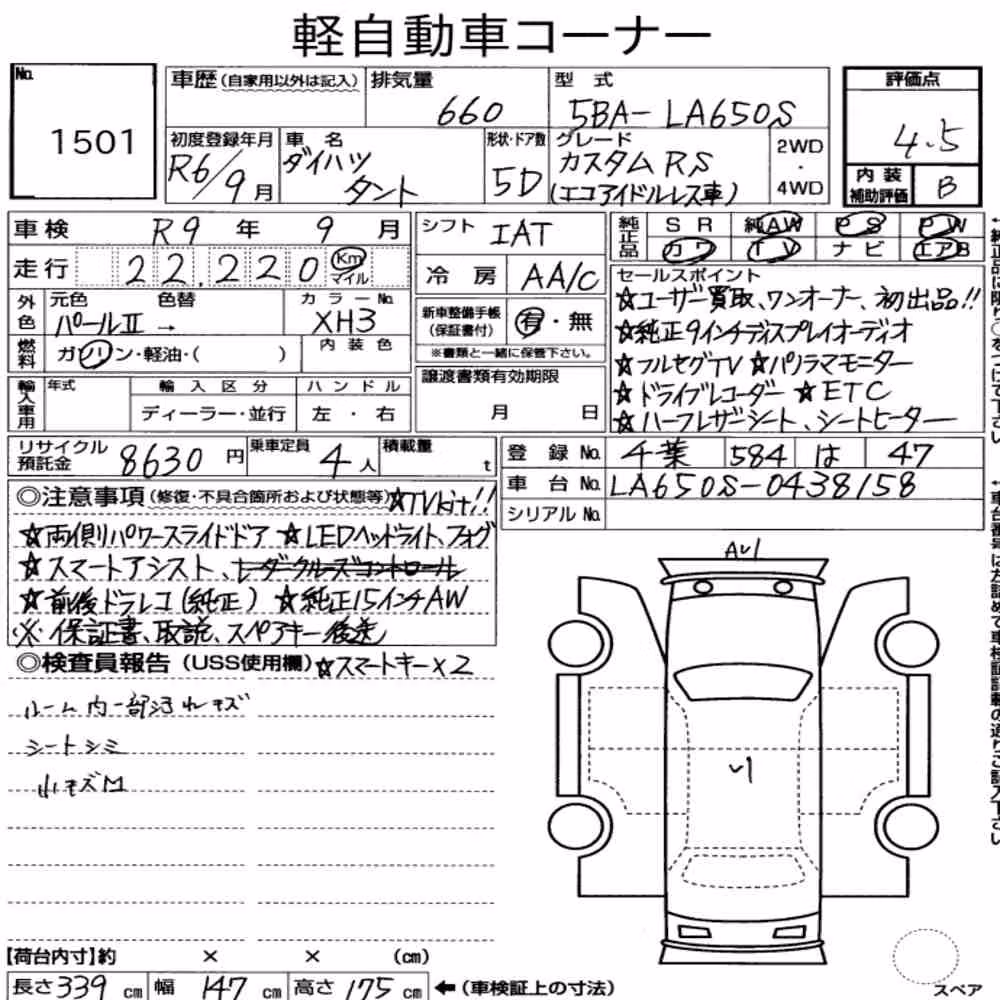 軽自動車コーナー
No. 1501
車歴(自家用以外は記入) 排気量 660 型式 5BA-LA650S
評価点 4.5
初度登録年月 R6/9月 車名 ダイハツ タント 形状・ドア数 5D グレード カスタムRS (エコアイドルレス車) 2WD・4WD
内装補助評価 B
車検 R9年 9月 シフト IAT
純正品 SR 純AW PS PW
カワ TV ナビ エアB
走行 22,220 Km マイル 冷房 AA/C
外色 元色 パールII → 色替 カラーNo. XH3
燃料 ガソリン・軽油・( ) 内装色
新車整備手帳(保証書付) 有・無
※書類と一緒に保管下さい。
輸入車用 年式 輸入区分 ディーラー・並行 ハンドル 左・右
譲渡書類有効期限 月 日
セールスポイント
☆ユーザー買取、ワンオーナー、初出品!!
☆純正9インチディスプレイオーディオ
☆フルセグTV ☆パノラマモニター
☆ドライブレコーダー ☆ETC
☆ハーフレザーシート、シートヒーター
リサイクル預託金 8630円 乗車定員 4人 積載量 t
登録No. 千葉 584 は 47
車台No. LA650S-0438158
シリアルNo.
◎注意事項(修復・不具合箇所および状態等)☆TVキット!!
☆両側パワースライドドア ☆LEDヘッドライト、フォグ
☆スマートアシスト、レーダークルーズコントロール
☆前後ドラレコ(純正) ☆純正15インチAW
※保証書、取説、スペアキー後送
◎検査員報告(USS使用欄)☆スマートキー×2
ルーム内一部汚れキズ
シートシミ
小キズM
A1
【荷台内寸】約 × × (cm)
長さ339cm 幅147cm 高さ175cm ←(車検証上の寸法)
スペア